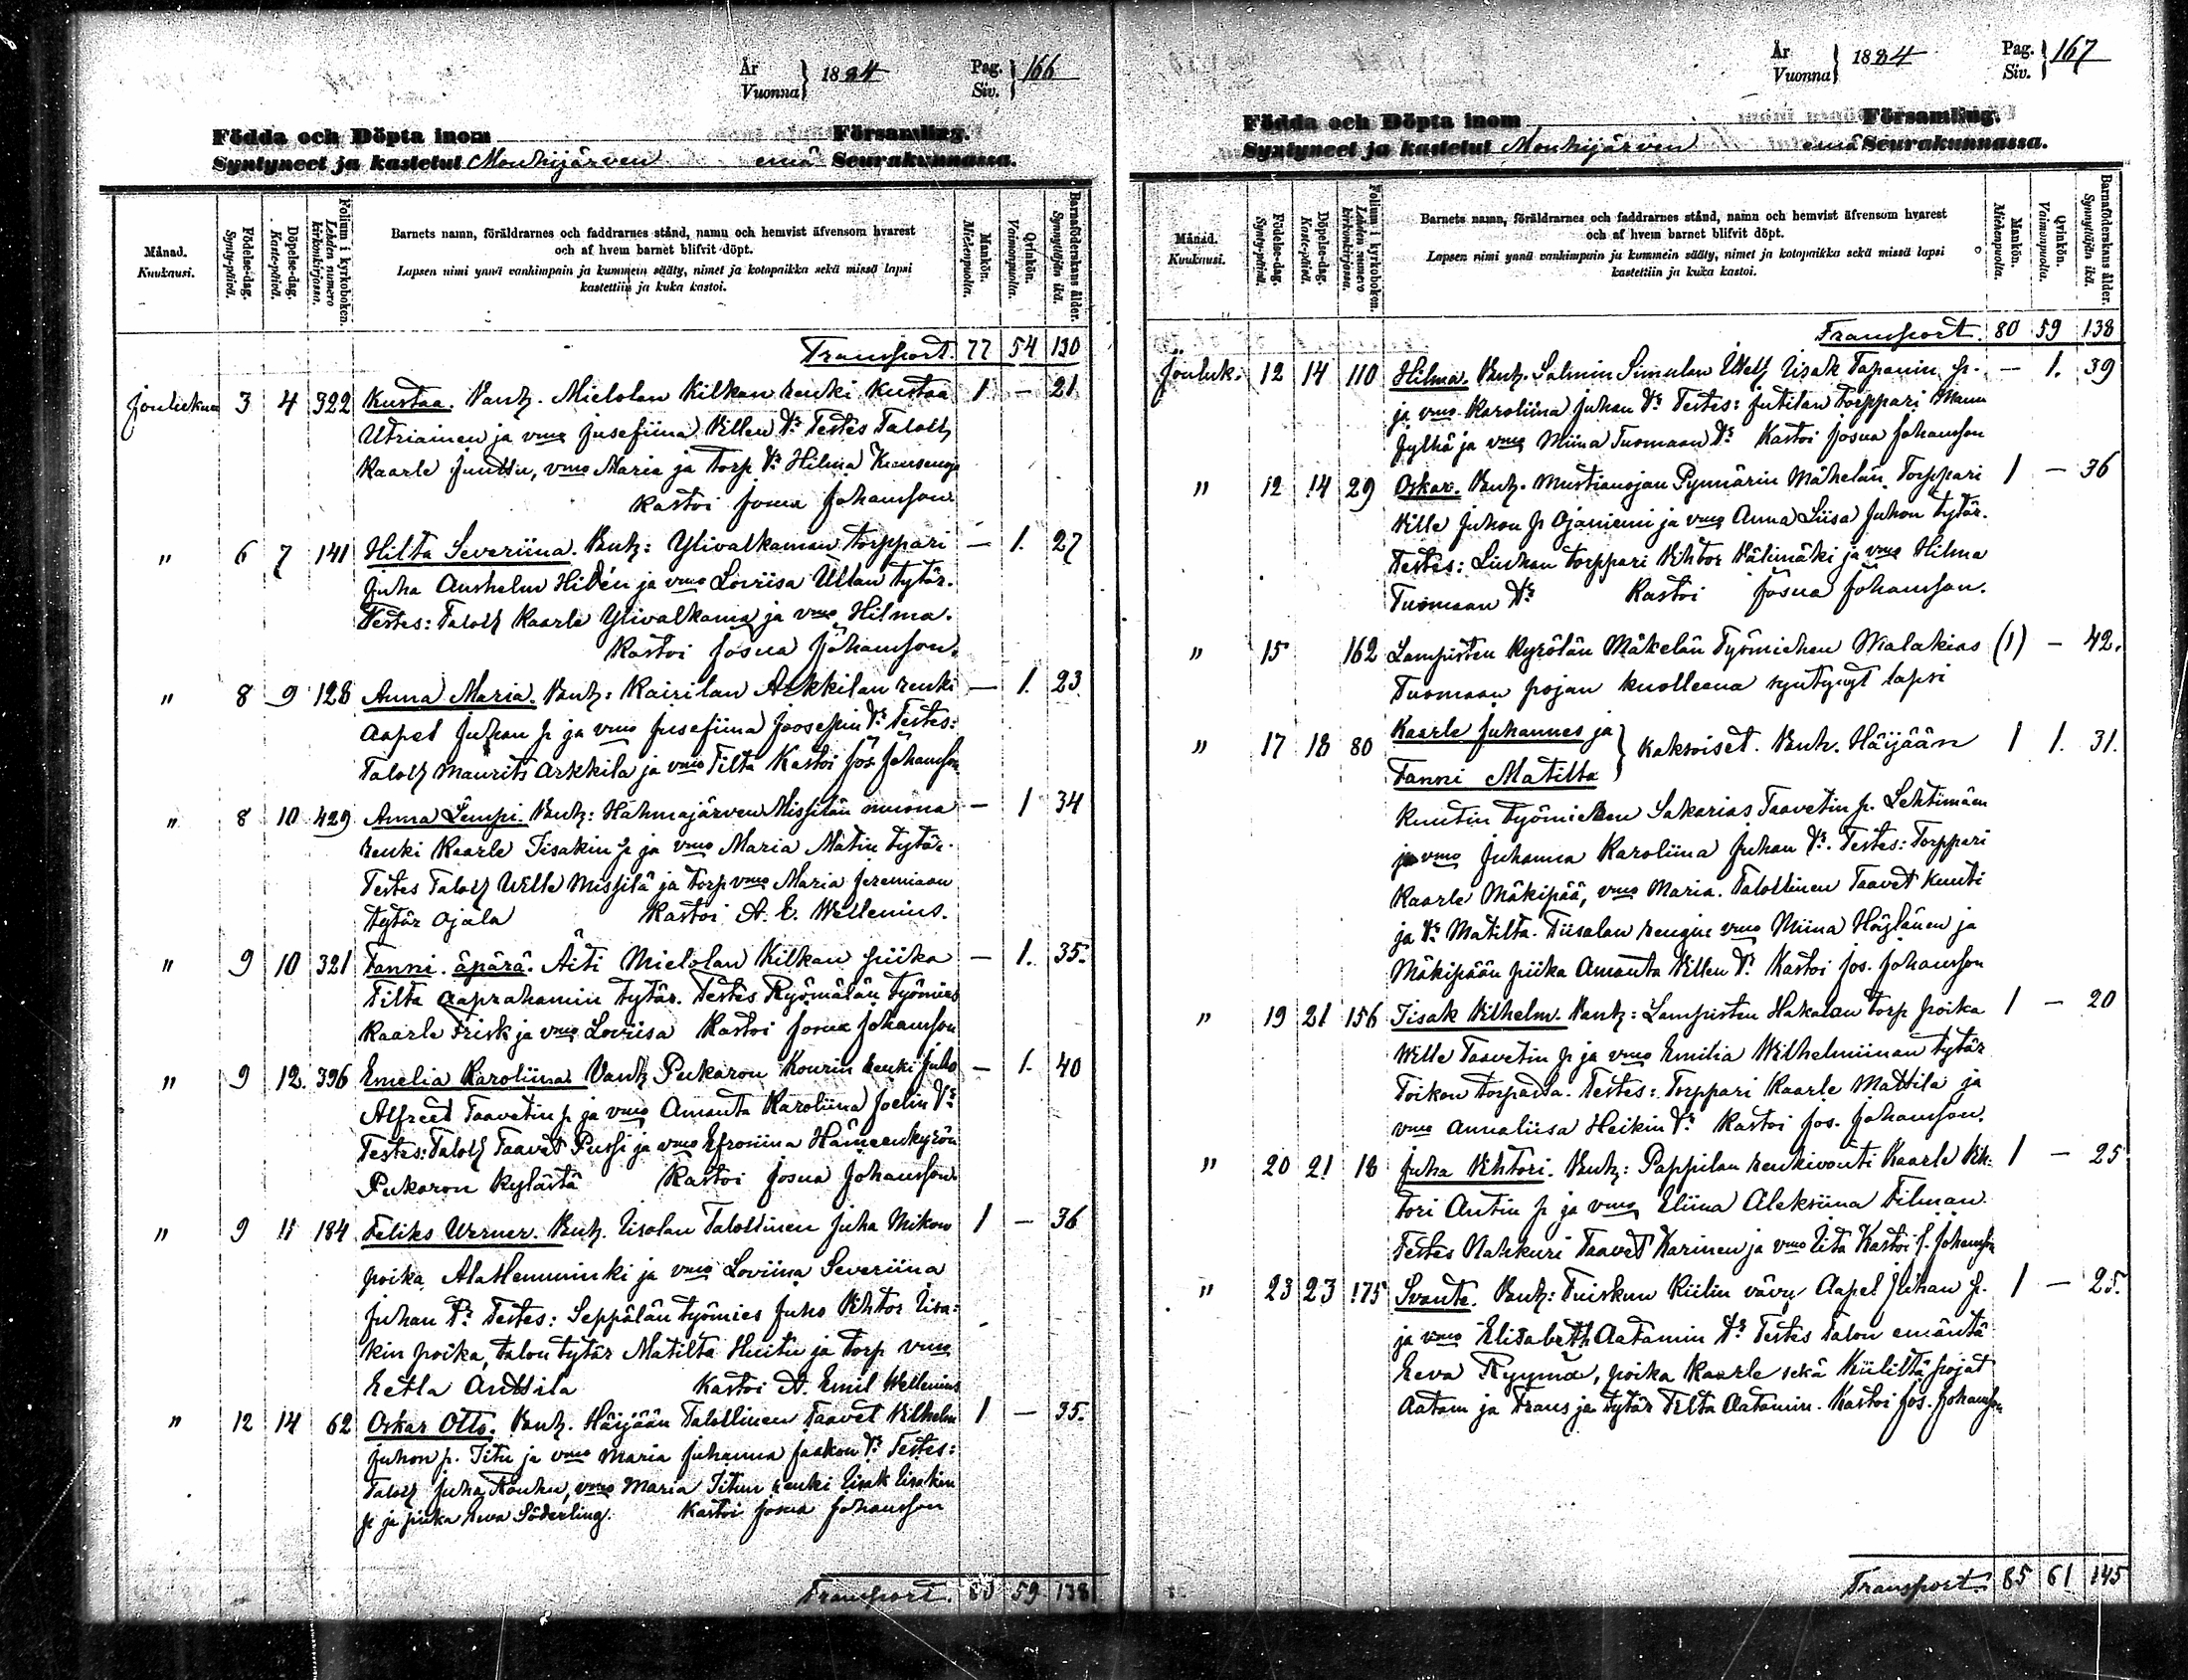 År
Vuonna } 1884 Pag.
Siv. } 166
Födda och Döpta inom Församling.
Syntyneet ja kastetut Mouhijärven emä Seurakunnassa.
Månad.
Kuukausi.
Födelse-dag.
Synty-päivä.
Döpelse-dag.
Kaste-päivä.
Folium i kyrkoboken.
Lehden numero kirkonkirjassa.
Barnets namn, föräldrarnes och faddrarnes stånd, namn och hemvist äfvensom hvarest
och af hvem barnet blifvit döpt.
Lapsen nimi ynnä vanhimpain ja kummein sääty, nimet ja kotopaikka sekä missä lapsi
kastettiin ja kuka kastoi.
Mankön.
Miehenpuolta.
Qvinkön.
Vaimonpuolta.
Barnaföderskans ålder.
Synnyttäjän ikä.
Transport. 77 54 130
Joulukuu 3 4 322 Kustaa. Vanh. Mielolan Kilkan renki Kustaa 1 — 21
Utriainen ja vmo Jusefiina Villen Tr Testes Talolls
Kaarle Junttu, vmo Maria ja torp Tr Hilma
Kastoi Josua Johansson
" 6 7 141 Hilta Severiina. Vanh: Ylivalkaman torppari — 1. 27
Juha Anshelm Hidén ja vmo Loviisa Ullan tytär.
Testes: Talolls Kaarle Ylivalkama ja vmo Hilma.
Kastoi Josua Johansson.
" 8 9 128 Anna Maria. Vanh: Kairilan Arkkilan renki — 1. 23
Aapel Juhan p ja vmo Jusefiina Joosepin Tr Testes:
Talolls Maurits Arkkila ja vmo Tilta Kastoi Jos. Johansson
" 8 10 429 Anna Lempi. Vanh: Hahmajärven Missilän muona — 1 34
renki Kaarle Iisakin p ja vmo Maria Matin tytär.
Testes Talolls Wille Missilä ja torp vmo Maria Jeremiaan
tytär Ojala Kastoi A. E. Wellenius.
" 9 10 321 Fanni. äpärä. Äiti Mielolan Kilkan piika — 1. 35.
Tilta Aaprahamin tytär. Testes Ryömälän työmies
Kaarle Frisk ja vmo Loviisa Kastoi Josua Johansson
" 9 12. 396 Emelia Karoliina. Vanh Pukaron Kourin renki Juho — 1. 40
Alfreet Taavetin p ja vmo Amanta Karoliina Joelin Tr
Testes: Talolls Taavet Pussi ja vmo Efrosiina Hämeenkyrön
Pukaron kylästä Kastoi Josua Johansson
" 9 11 184 Feliks Werner. Vanh. Uisolan Talollinen Juha Mikon 1 — 36
poika Alatlemminki ja vmo Loviina Severiina
Juhan Tr Testes: Seppälän työmies Juho Vihtor Iisa:
kin poika, talon tytär Matilta Huitu ja torp vmo
Eetla Anttila Kastoi A. Emil Wellenius
" 12 14 62 Oskar Otto. Vanh. Häijään Talollinen Taavet Vilhelm 1 — 35.
Juhon p. Iitu ja vmo Maria Juhanna Jaakon Tr Testes:
Talolls Juha Kouhu, vmo Maria Iitun renki Iisak Iisakin
p ja piika Eeva Söderling. Kastoi Josua Johansson
Transport. 80 59 138
År
Vuonna } 1884 Pag.
Siv. } 167
Födda och Döpta inom Församling.
Syntyneet ja kastetut Mouhijärven emä Seurakunnassa.
Månad.
Kuukausi.
Födelse-dag.
Synty-päivä.
Döpelse-dag.
Kaste-päivä.
Folium i kyrkoboken.
Lehden numero kirkonkirjassa.
Barnets namn, föräldrarnes och faddrarnes stånd, namn och hemvist äfvensom hvarest
och af hvem barnet blifvit döpt.
Lapsen nimi ynnä vanhimpain ja kummein sääty, nimet ja kotopaikka sekä missä lapsi
kastettiin ja kuka kastoi.
Mankön.
Miehenpuolta.
Qvinkön.
Vaimonpuolta.
Barnaföderskans ålder.
Synnyttäjän ikä.
Transport. 80 59 138
Jouluk. 12 14 110 Hilma. Vanh. Salmin Simulan Iisak Tapanin p. — 1. 39
ja vmo Karoliina Juhan Tr Testes: Jutilan torppari Manu
Jylhä ja vmo Miina Tuomaan Tr Kastoi Josua Johansson
" 12 14 29 Oskar. Vanh. Mustianojan Pynnärin Mäkelän Torppari 1 — 36
Ville Juhon p Ojaniemi ja vmo Anna Liisa Juhon tytär.
Testes: Liuhan torppari Vihtor Välimäki ja vmo Hilma
Tuomaan Tr Kastoi Josua Johansson.
" 15 162 Lampisten Kyrölän Mäkelän Työmiehen Malakias (1) — 42.
Tuomaan pojan kuolleena syntynyt lapsi
" 17 18 80 Kaarle Juhannes ja
Fanni Matilta } kaksoiset. Vanh. Häijään 1 1. 31.
Kuutin työmiehen Sakarias Taavetin p. Lehtimäen
ja vmo Juhanna Karoliina Juhan Tr. Testes: Torppari
Kaarle Mäkipää, vmo Maria. Talollinen Taavet Kuuti
ja Tr Matilta. Tiisalan rengin vmo Miina Höylänen ja
Mäkipään piika Amanta Villen Tr Kastoi Jos. Johansson
" 19 21 156 Iisak Vilhelm. Vanh: Lampisten Hakalan torp poika 1 — 20
Wille Taavetin p ja vmo Emilia Wilhelmiinan tytär
Toikon torpasta. Testes: Torppari Kaarle Mattila ja
vmo Annaliisa Heikin Tr Kastoi Jos. Johansson.
" 20 21 18 Juha Vihtori. Vanh: Pappilan renkivouti Kaarle Vih: 1 — 25
tori Antin p ja vmo Eliina Aleksiina Filman
Testes Nahkuri Taavet Karinen ja vmo Iita Kastoi J. Johansson
" 23 23 175 Svante. Vanh: Tuiskun Kiilin vävy Aapel Juhan p. 1 — 25.
ja vmo Elisabeth Aatamin Tr Testes Talon emäntä
Eeva Ryynä, poika Kaarle sekä Kiililtä pojat
Aatam ja Frans ja tytär Tilta Aatamin. Kastoi Jos. Johansson
Transport. 85 61 145